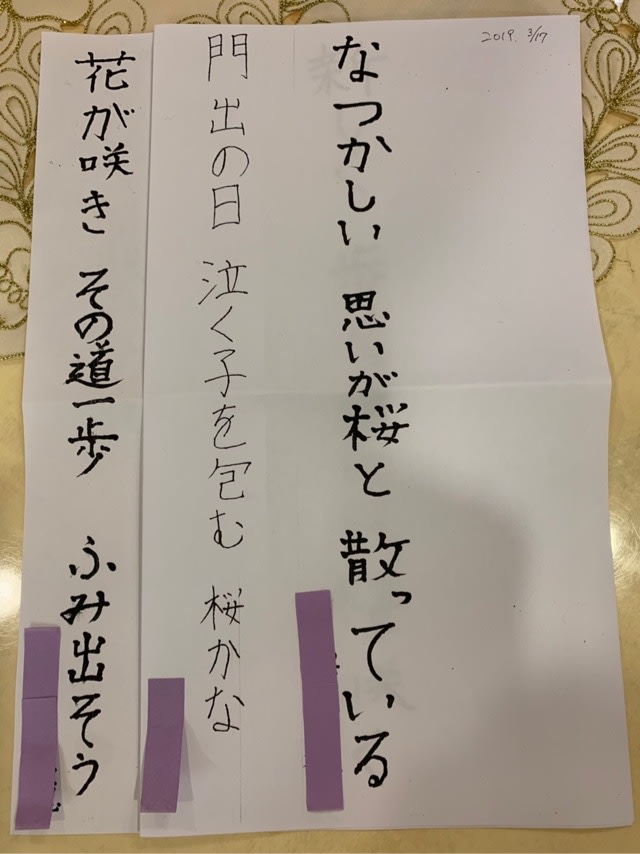 2019. 3/17
なつかしい 思いが桜と 散っている
門出の日 泣く子を包む 桜かな
花が咲き その道一歩 ふみ出そう